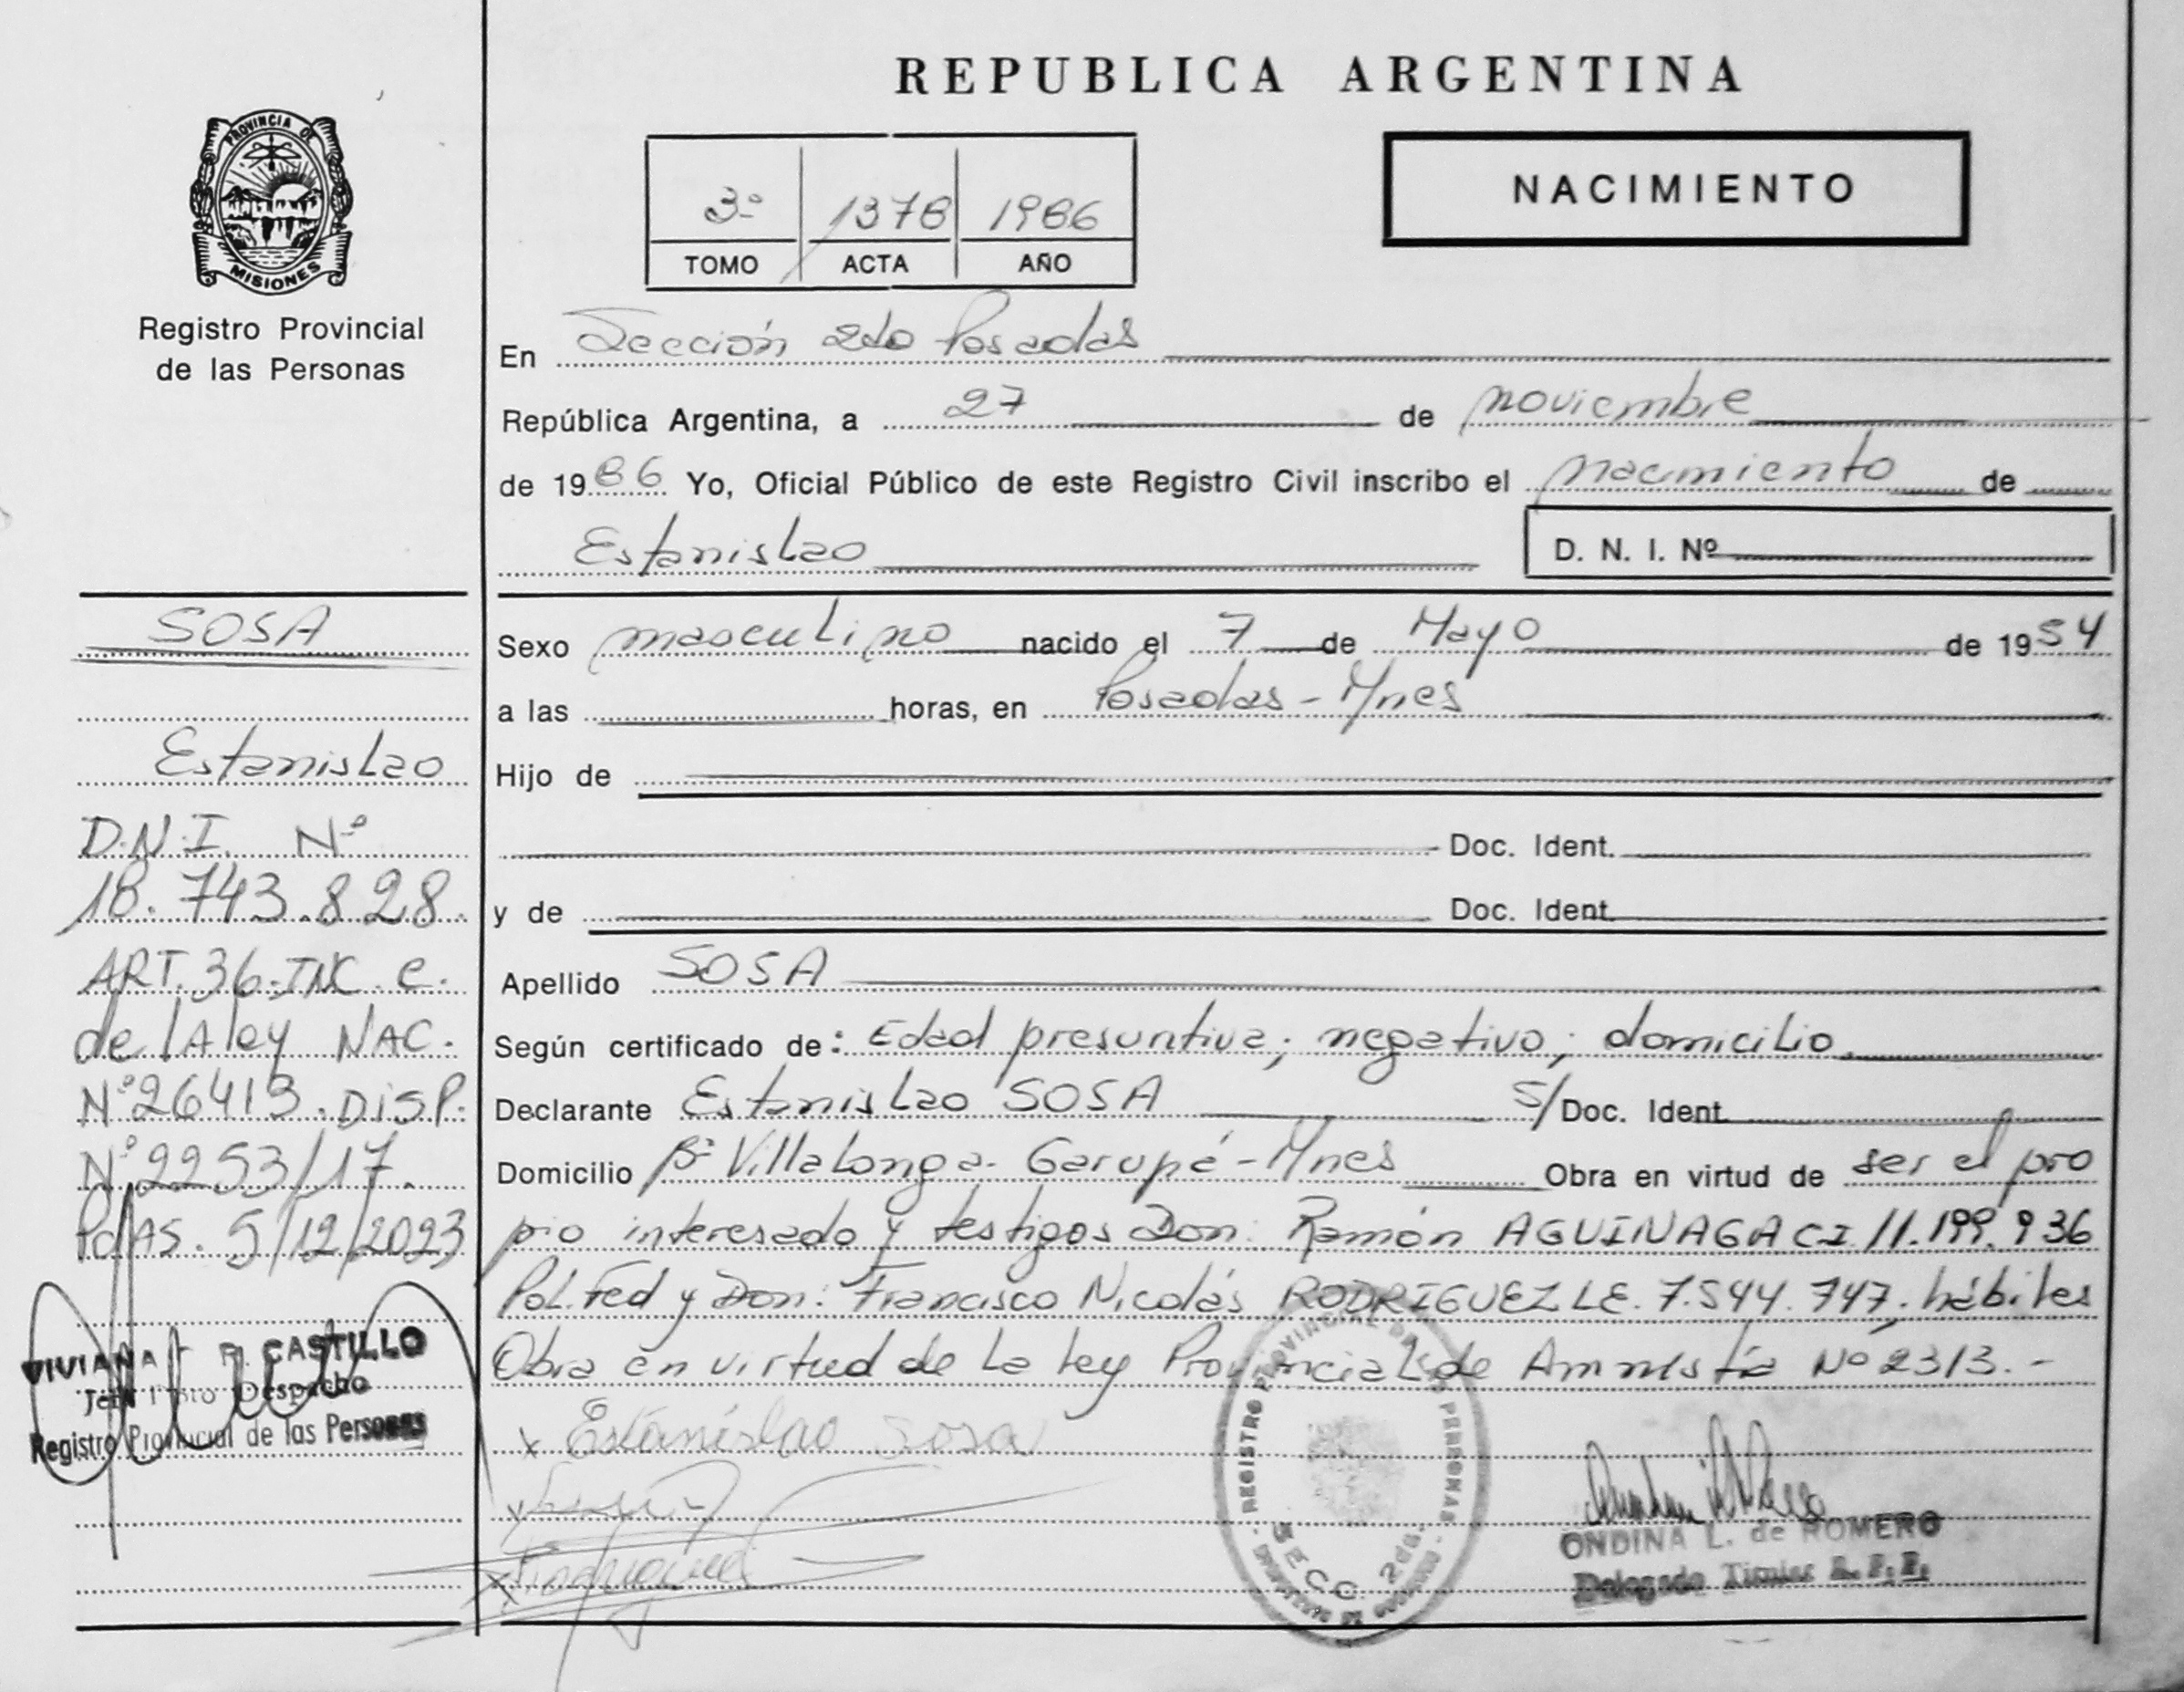 REPUBLICA ARGENTINA
PROVINCIA DE
MISIONES
Registro Provincial
de las Personas
3º 1378 1986
TOMO ACTA AÑO
NACIMIENTO
En Sección 2da Posadas
República Argentina, a 27 de noviembre
de 1986 Yo, Oficial Público de este Registro Civil inscribo el nacimiento de
Estanislao D. N. I. Nº
SOSA
Estanislao
D.N.I. Nº
18.743.828.
ART. 36. INC. C.
de lA ley NAC.
Nº 26413. DISP.
Nº 2253/17.
PdAS. 5/12/2023
VIVIANA F. R. CASTILLO
Despacho
Registro Provincial de las Personas
Sexo masculino nacido el 7 de Mayo de 1954
a las horas, en Posadas - Mnes
Hijo de
Doc. Ident.
y de Doc. Ident.
Apellido SOSA
Según certificado de: Edad presuntiva; negativo; domicilio
Declarante Estanislao SOSA S/ Doc. Ident.
Domicilio Bº Villalonga - Garupá - Mnes Obra en virtud de ser el pro
pio interesado y testigos Don: Ramón AGUINAGA CI 11.199.936
Pol. Fed y Don: Francisco Nicolás RODRIGUEZ LE. 7.544.747. hábiles
Obra en virtud de la ley Provincial de Amnistía Nº 2313.-
x Estanislao Sosa
x Rodriguez
REGISTRO PROVINCIAL DE LAS PERSONAS
SECC. 2da.
ONDINA L. de ROMERO
Delegada Titular R. P. P.